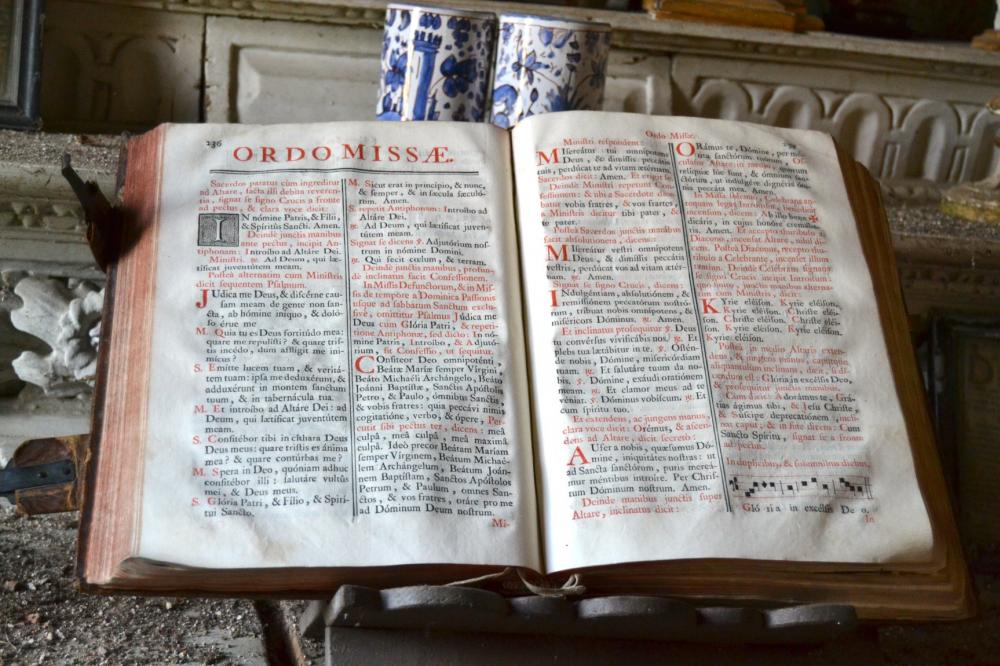 236
ORDO MISSÆ.
Sacerdos paratus cùm ingreditur
ad Altare, facta illi debita reveren-
tia, signat se signo Crucis a fronte
ad pectus, & clara voce dicit:
IN nómine Patris, & Fílii,
& Spíritûs Sancti. Amen.
Deinde junctis manibus
ante pectus, incipit An-
tiphonam: Introíbo ad Altáre Dei.
Ministri. ℟. Ad Deum, qui læ-
tíficat juventútem meam.
Posteà alternatim cum Ministris
dicit sequentem Psalmum.
JUdica me Deus, & discérne cau-
sam meam de gente non san-
cta, ab hómine iníquo, & doló-
so érue me
M. Quia tu es Deus fortitúdo mea:
quare me repulísti? & quare tris-
tis incédo, dum afflígit me ini-
mícus?
S. Emítte lucem tuam, & veritá-
tem tuam: ipsa me deduxérunt, &
adduxérunt in montem sanctum
tuum, & in tabernácula tua.
M. Et introíbo ad Altáre Dei: ad
Deum, qui lætíficat juventútem
meam.
S. Confitébor tibi in cíthara Deus
Deus meus: quare tristis es ánima
mea? & quare contúrbas me?
M. Spera in Deo, quóniam adhuc
confitébor illi: salutáre vultûs
mei, & Deus meus.
S. Glória Patri, & Fílio, & Spíri-
tui Sancto.
M. Sicut erat in princípio, & nunc,
& semper, & in sæcula sæculó-
rum. Amen.
S. repetit Antiphonam: Introíbo ad
Altáre Dei.
℟. Ad Deum, qui lætíficat juven-
tútem meam.
Signat se dicens ℣. Adjutórium nos-
trum in nómine Dómini.
℟. Qui fecit cœlum, & terram.
Deinde junctis manibus, profun-
dè inclinatus facit Confessionem.
In Missis Defunctorum, & in Mis-
sis de tempore à Dominica Passionis
usque ad sabbatum Sanctum exclu-
sivè, omittitur Psalmus Júdica me
Deus cum Glória Patri, & repeti-
tione Antiphonæ, sed dicto: In nó-
mine Patris, Introíbo, & Adjutó-
rium, fit Confessio, ut sequitur.
COnfíteor Deo omnipoténti,
Beátæ Maríæ semper Vírgini,
Beáto Michaéli Archángelo, Beáto
Joánni Baptístæ, Sanctis Apóstolis
Petro, & Paulo, ómnibus Sanctis,
& vobis fratres: quia peccávi nimis
cogitatióne, verbo, & ópere, Per-
cutit sibi pectus ter, dicens: meâ
culpâ, meâ culpâ, meâ máximâ
culpâ. Ideò precor Beátam Maríam
semper Vírginem, Beátum Michaé-
lem Archángelum, Beátum Joán-
nem Baptístam, Sanctos Apóstolos
Petrum, & Paulum, omnes Sanc-
tos, & vos fratres, oráre pro me
ad Dóminum Deum nostrum.
Mi-
Ordo Missæ.
Ministri respondent:
MIsereátur tui omnípotens
Deus, & dimíssis peccátis
tuis, perdúcat te ad vitam ætérnam.
Sacerdos dicit: Amen. Et erigit se.
Deinde Ministri repetunt Con-
fessionem: & ubi à Sacerdote dice-
batur vobis fratres, & vos fratres,
à Ministris dicitur tibi pater, &
te pater.
Postea Sacerdos junctis manibus
facit absolutionem, dicens:
MIsereátur vestri omnípotens
Deus, & dimíssis peccátis
vestris, perdúcat vos ad vitam ætér-
nam. ℟. Amen.
Signat se signo Crucis, dicens:
INdulgéntiam, absolutiónem, &
remissiónem peccatórum nostró-
rum, tríbuat nobis omnípotens, &
miséricors Dóminus. ℟. Amen.
Et inclinatus prosequitur ℣. Deus
tu convérsus vivificábis nos. ℟. Et
plebs tua lætábitur in te. ℣. Ostén-
de nobis, Dómine, misericórdiam
tuam. ℟. Et salutáre tuum da no-
bis. ℣. Dómine, exáudi oratiónem
meam. ℟. Et clamor meus ad te
véniat. ℣. Dóminus vobíscum. ℟. Et
cum spíritu tuo.
Et extendens, ac jungens manus,
clara voce dicit: Orémus, & ascen-
dens ad Altare, dicit secretò:
AUfer a nobis, quæsumus Dó-
mine, iniquitátes nostras: ut
ad Sancta sanctórum, puris mereá-
mur méntibus introíre. Per Chris-
tum Dóminum nostrum. Amen.
Deinde manibus junctis super
Altare, inclinatus dicit:
ORámus te, Dómine, per mé-
rita Sanctórum tuórum, Os-
culatur Altare in medio, quorum
relíquiæ hîc sunt, & ómnium
Sanctórum, ut indulgére dignéris ómnia
peccáta mea. Amen.
In Missa solemni, Celebrans
dicens: Ab illo bene✠
dicáris, in cujus honóre cremábe-
ris. Amen. Et accepto thuribulo à
Diacono, incensat Altare, nihil di-
cens. Posteà Diaconus, recepto thuri-
bulo à Celebrante, incensat illum
tantum. Deinde Celebrans signans
se signo Crucis incipit Introitum:
quo finito, junctis manibus, alterna-
tim cum Ministris, dicit:
KYrie eléison. Kyrie eléison.
Kyrie eléison. Christe eléi-
son. Christe eléison. Christe eléi-
son. Kyrie eléison. Kyrie eléison.
Kyrie eléison.
Posteà in medio Altaris exten-
dens, & jungens manus, caputque
aliquantulum inclinans, dicit, si di-
cendum est: Glória in excélsis Deo,
& prosequitur junctis manibus.
Cum dicit: Adorámus te, Grá-
tias ágimus tibi, & Jesu Christe,
& Súscipe deprecatiónem, incli-
nat caput; & in fine dicens: Cum
Sancto Spíritu, signat se à fronte
ad pectus.
In duplicibus, & solemnibus diebus.
Gló ri a in excélsis De o.
In